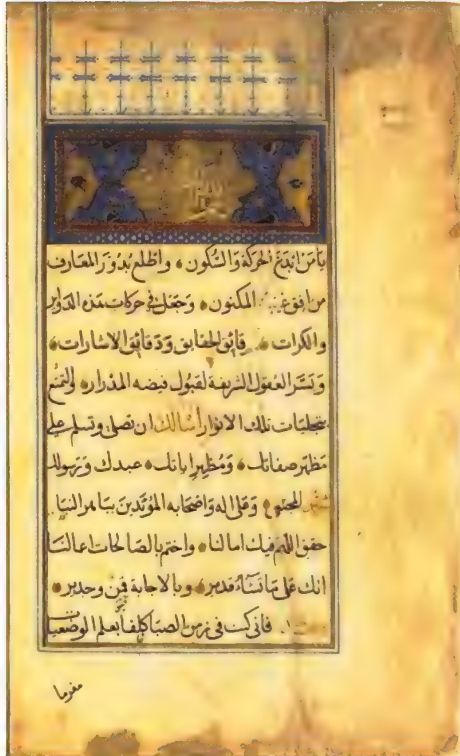 يا من ابدع الحركة والسكون، واطلع بدور المعارف
من افق غيبه المكنون، وجعل في حركات هذه الدواير
والكرات، قائق الحقايق ودقائق الاشارات،
ويسر العقول الشريفة لقبول فيضه المدرار، والتمتع
بتجليات تلك الانوار أسألك ان تصلي وتسلم على
مظهر صفاتك، ومظهر اياتك، عبدك ورسولك
المجتبى، وعلى اله واصحابه المؤيدين
حقق اللهم فيك امالنا، واختم بالصالحات اعمالنا
انك على ما تشاء قدير، وبالاجابة قمن وجدير،
فاني كنت في زمن الصبا كلفا بعلم الوضعيات
مغرما